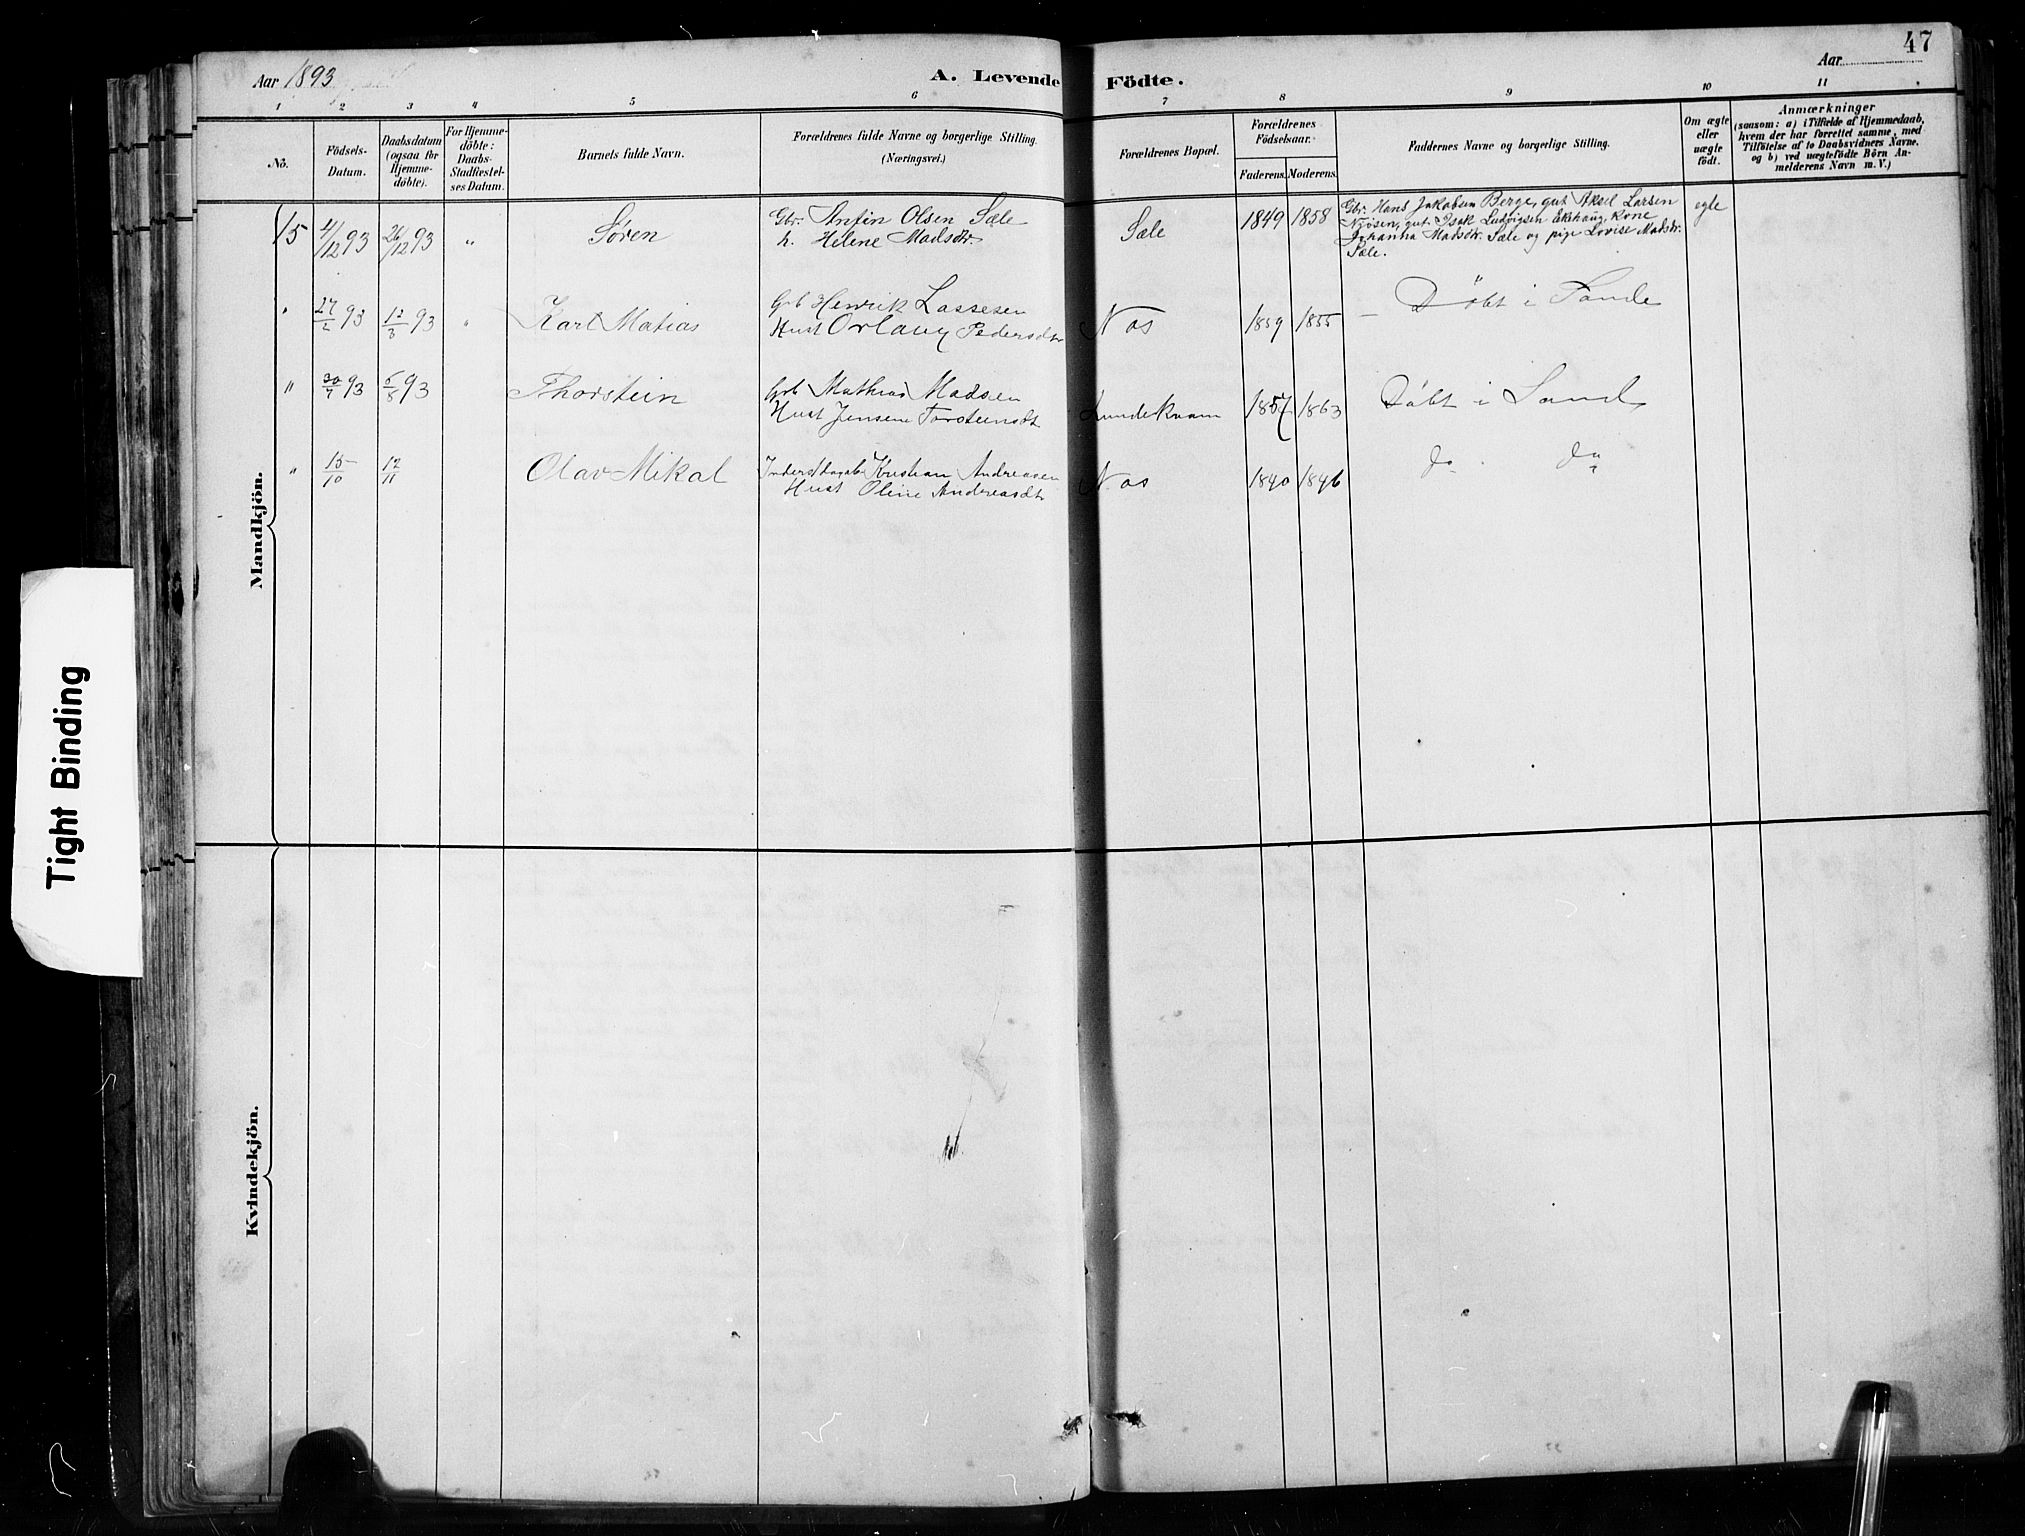 Aar 1893
A. Levende Födte.
Aar
47
1 2 3 4 5 6 7 8 9 10 11
No.
Födsels-
Datum.
Daabsdatum
(ogsaa for
Hjemme-
döbte).
For Hjemme-
döbte:
Daabs-
Stadfæstel-
ses Datum.
Barnets fulde Navn.
Forældrenes fulde Navne og borgerlige Stilling.
(Næringsvei.)
Forældrenes Bopæl.
Forældrenes
Födselsaar.
Faderens. Moderens.
Faddernes Navne og borgerlige Stilling.
Om ægte
eller
uægte
födt.
Anmærkninger
(saasom: a) i Tilfælde af Hjemmedaab,
hvem der har forrettet samme, med
Tilföielse af to Daabsvidners Navne,
og b) ved uægtefödte Börn An-
melderens Navn m. V.)
Mandkjön.
15 4/12 93 26/12 93 " Søren
Gbr. Anfin Olsen Sæle
h. Helene Madsdtr.
Sæle 1849 1858
Gbr. Hans Jakobsen Berge, gut Aksel Larsen
Njøsen, gut Isak Ludvigsen Ekhaug, Kone
Johanna Madsdtr. Sæle og pige Lovise Madsdtr.
Sæle.
egte
" 27/2 93 12/3 93 " Karl Matias
Grb Henrik Lassesen
Hust Orlaug Pedersdtr
Nos 1859 1855 — Døbt i Sande
" 30/7 93 6/8 93 Thorstein
Grb Mathias Madsen
Hust Jensine Torsteinsdt
Lundekvam 1857 1863 Døbt i Sand
" 15/10 12/11 Olav Mikal
Kristian Andreassen
Hust Oline Andreasdt
Nos 1840 1846 do do
Kvindekjön.
Tight Binding